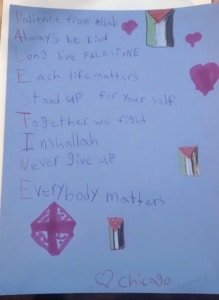 Patience from Allah
Always be kind
Long live PALESTINE
Each life matters
Stand up for your self
Together we fight
Inshallah
Never give up
Everybody matters
♡ chicago